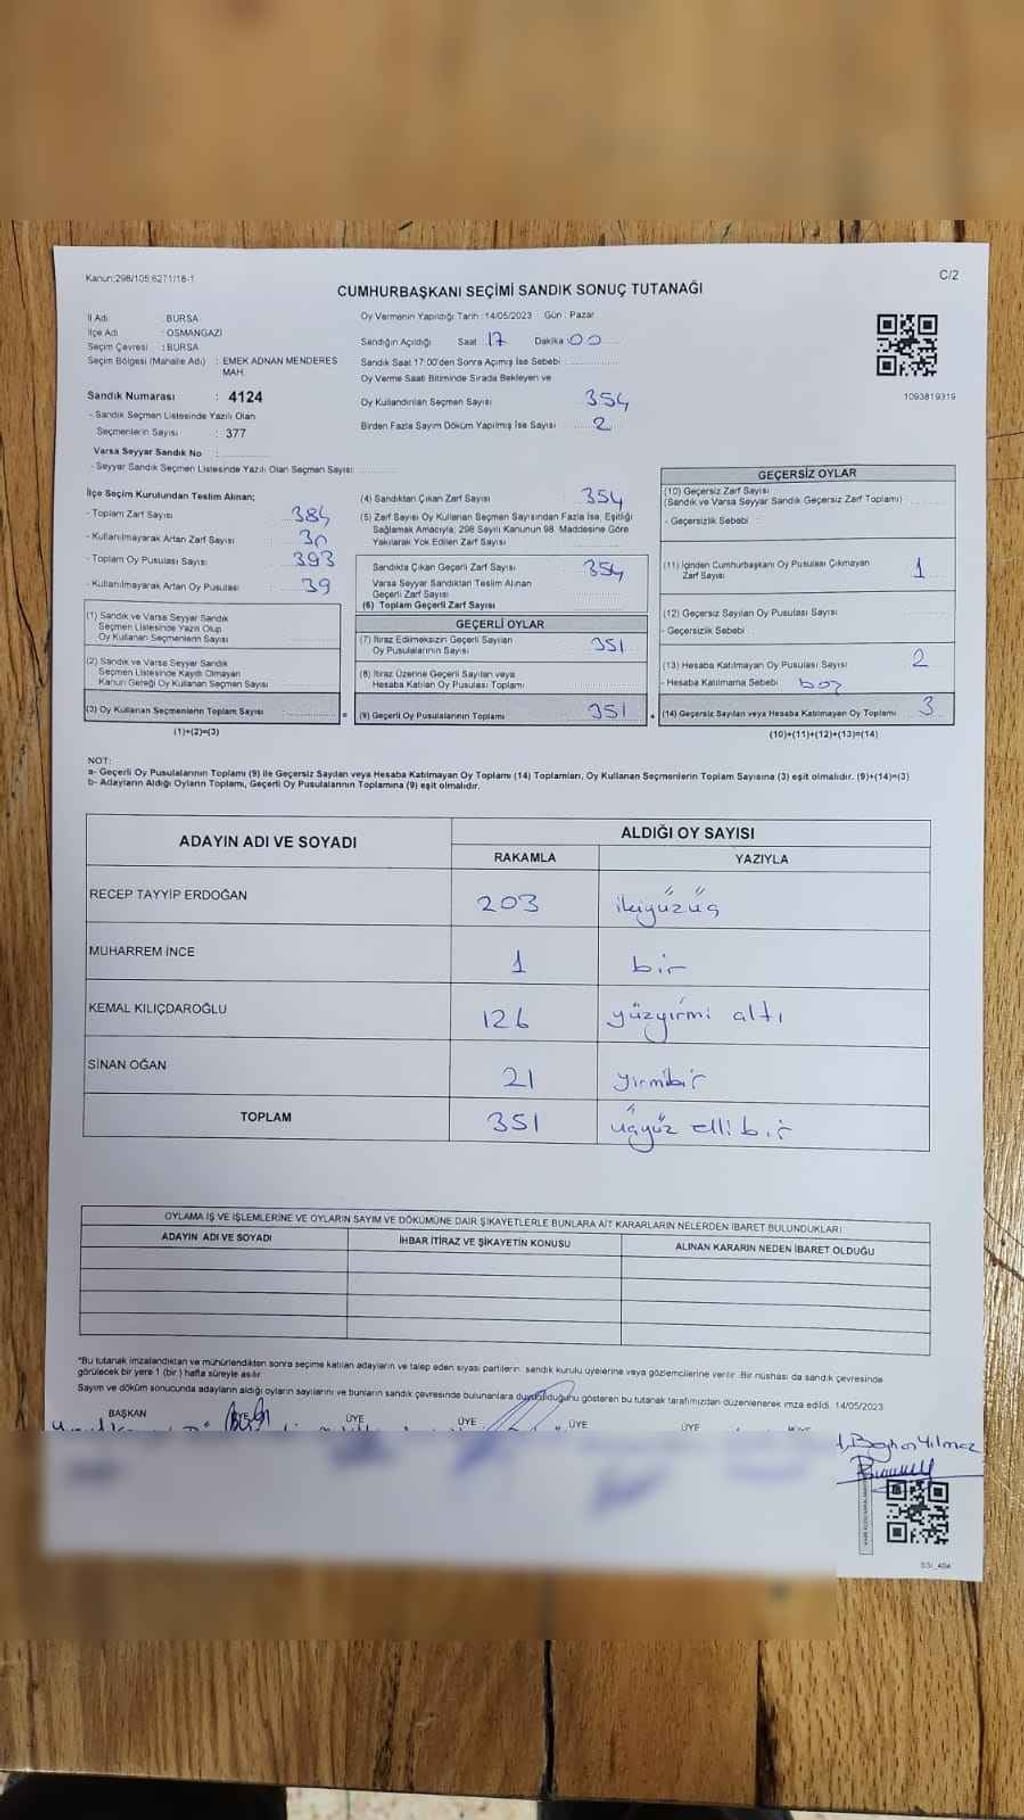 Kanun:298/105;6271/18-1
C/2
CUMHURBAŞKANI SEÇİMİ SANDIK SONUÇ TUTANAĞI
İl Adı : BURSA
İlçe Adı : OSMANGAZİ
Seçim Çevresi : BURSA
Seçim Bölgesi (Mahalle Adı) : EMEK ADNAN MENDERES MAH.
Sandık Numarası : 4124
- Sandık Seçmen Listesinde Yazılı Olan
Seçmenlerin Sayısı : 377
Varsa Seyyar Sandık No
- Seyyar Sandık Seçmen Listesinde Yazılı Olan Seçmen Sayısı
Oy Vermenin Yapıldığı Tarih :14/05/2023 Gün : Pazar
Sandığın Açıldığı Saat 17 Dakika :00
Sandık Saat 17:00'den Sonra Açılmış İse Sebebi
Oy Verme Saati Bitiminde Sırada Bekleyen ve
Oy Kullandırılan Seçmen Sayısı 354
Birden Fazla Sayım Döküm Yapılmış İse Sayısı 2
1093819319
İlçe Seçim Kurulundan Teslim Alınan;
- Toplam Zarf Sayısı 384
- Kullanılmayarak Artan Zarf Sayısı 30
- Toplam Oy Pusulası Sayısı 393
- Kullanılmayarak Artan Oy Pusulası 39
(1) Sandık ve Varsa Seyyar Sandık
Seçmen Listesinde Yazılı Olup
Oy Kullanan Seçmenlerin Sayısı
(2) Sandık ve Varsa Seyyar Sandık
Seçmen Listesinde Kayıtlı Olmayan
Kanun Gereği Oy Kullanan Seçmen Sayısı
(3) Oy Kullanan Seçmenlerin Toplam Sayısı
(1)+(2)=(3)
(4) Sandıktan Çıkan Zarf Sayısı 354
(5) Zarf Sayısı Oy Kullanan Seçmen Sayısından Fazla İse, Eşitliği
Sağlamak Amacıyla, 298 Sayılı Kanunun 98. Maddesine Göre
Yakılarak Yok Edilen Zarf Sayısı
Sandıkta Çıkan Geçerli Zarf Sayısı 354
Varsa Seyyar Sandıktan Teslim Alınan
Geçerli Zarf Sayısı
(6) Toplam Geçerli Zarf Sayısı
GEÇERLİ OYLAR
(7) İtiraz Edilmeksizin Geçerli Sayılan
Oy Pusulalarının Sayısı 351
(8) İtiraz Üzerine Geçerli Sayılan veya
Hesaba Katılan Oy Pusulası Toplamı
= (9) Geçerli Oy Pusulalarının Toplamı 351
GEÇERSİZ OYLAR
(10) Geçersiz Zarf Sayısı
(Sandık ve Varsa Seyyar Sandık Geçersiz Zarf Toplamı)
- Geçersizlik Sebebi
(11) İçinden Cumhurbaşkanı Oy Pusulası Çıkmayan
Zarf Sayısı 1
(12) Geçersiz Sayılan Oy Pusulası Sayısı
- Geçersizlik Sebebi
(13) Hesaba Katılmayan Oy Pusulası Sayısı 2
- Hesaba Katılmama Sebebi boş
+ (14) Geçersiz Sayılan veya Hesaba Katılmayan Oy Toplamı 3
(10)+(11)+(12)+(13)=(14)
NOT:
a- Geçerli Oy Pusulalarının Toplamı (9) ile Geçersiz Sayılan veya Hesaba Katılmayan Oy Toplamı (14) Toplamları, Oy Kullanan Seçmenlerin Toplam Sayısına (3) eşit olmalıdır. (9)+(14)=(3)
b- Adayların Aldığı Oyların Toplamı, Geçerli Oy Pusulalarının Toplamına (9) eşit olmalıdır.
ADAYIN ADI VE SOYADI
ALDIĞI OY SAYISI
RAKAMLA YAZIYLA
RECEP TAYYİP ERDOĞAN 203 ikiyüzüç
MUHARREM İNCE 1 bir
KEMAL KILIÇDAROĞLU 126 yüzyirmi altı
SİNAN OĞAN 21 yirmibir
TOPLAM 351 üçyüz elli bir
OYLAMA İŞ VE İŞLEMLERİNE VE OYLARIN SAYIM VE DÖKÜMÜNE DAİR ŞİKAYETLERLE BUNLARA AİT KARARLARIN NELERDEN İBARET BULUNDUKLARI
ADAYIN ADI VE SOYADI İHBAR İTİRAZ VE ŞİKAYETİN KONUSU ALINAN KARARIN NEDEN İBARET OLDUĞU
*Bu tutanak imzalandıktan ve mühürlendikten sonra seçime katılan adayların ve talep eden siyasi partilerin, sandık kurulu üyelerine veya gözlemcilerine verilir. Bir nüshası da sandık çevresinde
görülecek bir yere 1 (bir) hafta süreyle asılır.
Sayım ve döküm sonucunda adayların aldığı oyların sayılarını ve bunların sandık çevresinde bulunanlara duyurulduğunu gösteren bu tutanak tarafımızdan düzenlenerek imza edildi. 14/05/2023
BAŞKAN ÜYE ÜYE ÜYE ÜYE ÜYE
Yılmaz